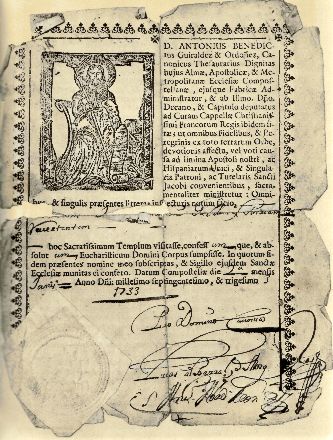 D. ANTONIUS BENEDIC-
Guiraldez & Ordoñez, Ca-
nonicus Thesaurarius Dignitas
hujus Almæ, Apostolicæ, & Me-
tropolitanæ Ecclesiæ Compos-
tellanæ, ejusque Fabricæ Ad-
ministrator, & ab Illmo. Dño.
Decano, & Capitulo deputatus
ad Curam Cappellæ Christianis-
simi Francorum Regis ibidem si-
tæ; ut omnibus Fidelibus, & Pe-
regrinis ex toto terrarum Orbe,
devotionis affectu, vel voti causa
ad limina Apostoli nostri, ac
Hispaniarum Unici, & Singula-
ris Patroni, ac Tutelaris Sancti
Jacobi convenientibus, sacra-
mentaliter ministretur: Omni-
bus, & singulis præsentes Litteras inspecturis notum facio,
hoc Sacratissimum Templum visitasse, confessum que, & ab-
solutum Eucharisticum Domini Corpus sumpsisse. In quorum fi-
dem præsentes nomine meo subscriptas, & Sigillo ejusdem Sanctæ
Ecclesiæ munitas ei confero. Datum Compostellæ die mensis
Anno Dñi: millesimo septingentesimo, & trigesimo
1733